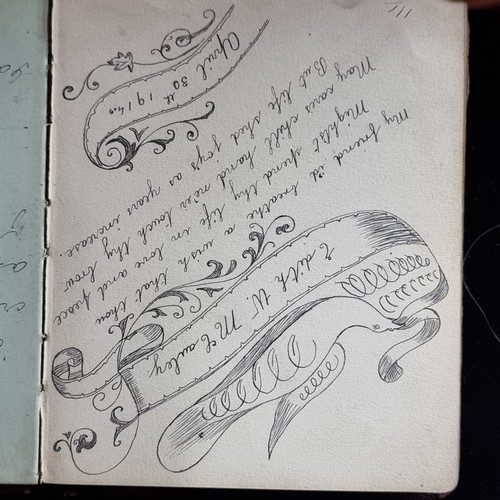 Edith W. McCauley
My friend I'd breathe a wish that thou
Mightst spend thy life in love and peace
May care's chill hand ne'er touch thy brow
But life shed joy's as years increase.
April 30th 1914.